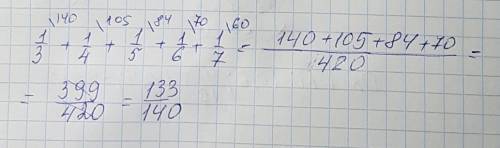 1/3 \140 + 1/4 \105 + 1/5 \84 + 1/6 \70 + 1/7 \60 = 140+105+84+70/420 =
= 399/420 = 133/140